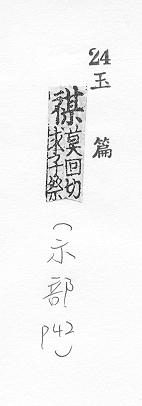 24
玉篇
禖莫回切
求子祭
(示部 P42)